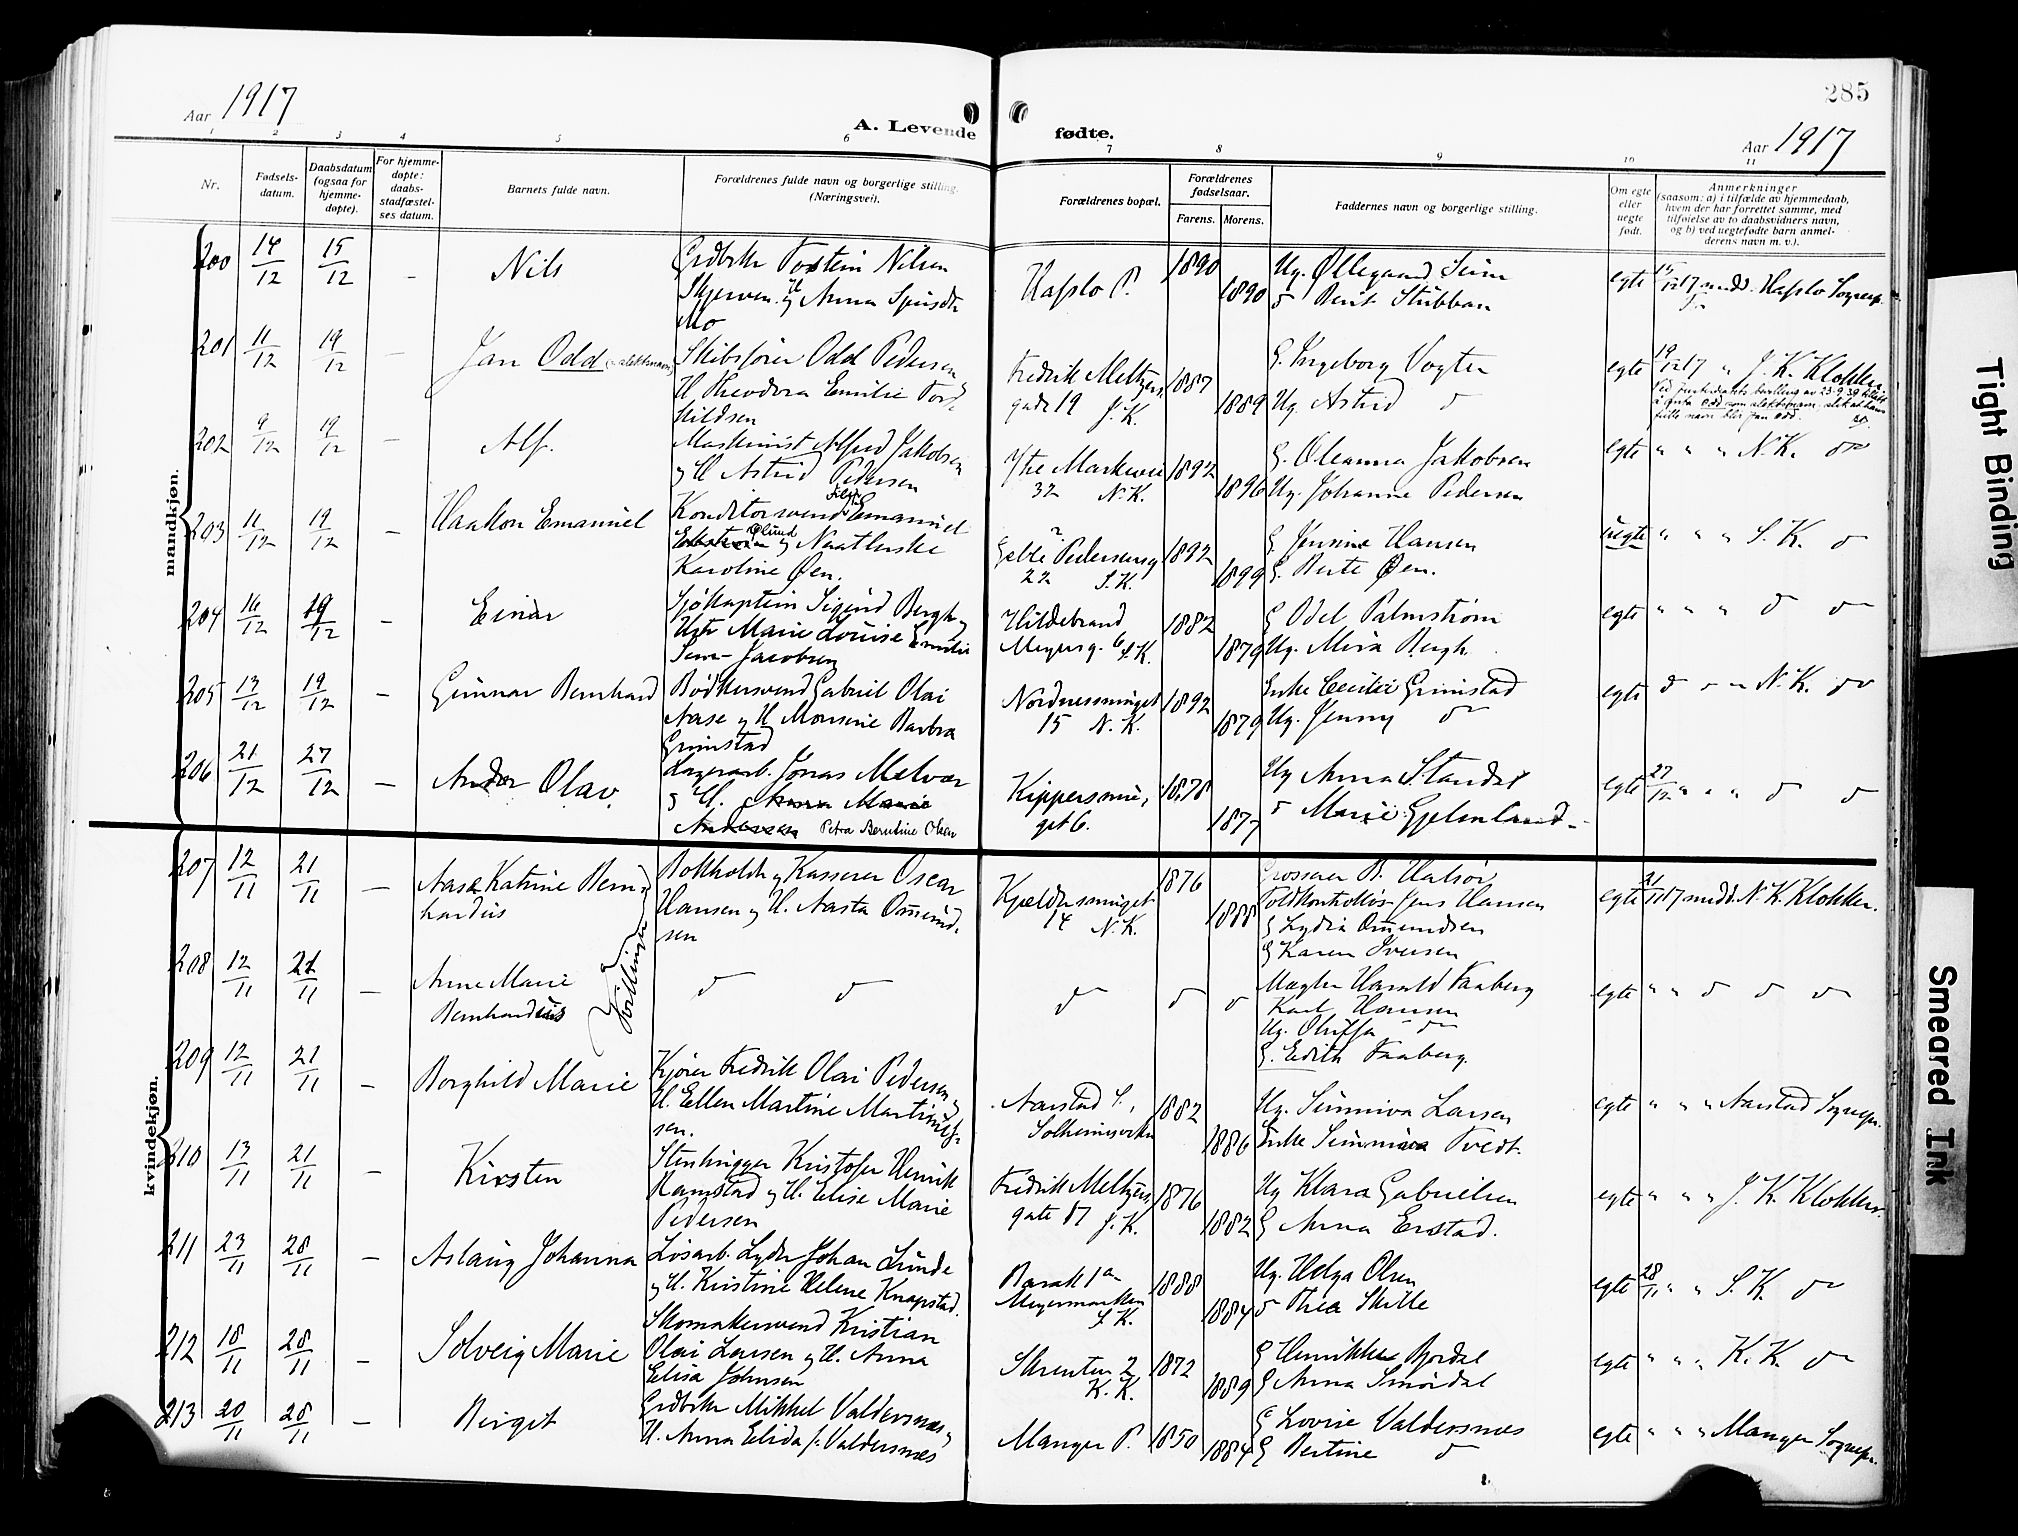 285
Aar 1917
A. Levende fødte.
Aar 1917
1 2 3 4 5 6 7 8 9 10 11
Nr.
Fødsels-
datum.
Daabsdatum
(ogsaa for
hjemme-
døpte).
For hjemme-
døpte:
daabs-
stadfæstel-
ses datum.
Barnets fulde navn.
Forældrenes fulde navn og borgerlige stilling.
(Næringsvei).
Forældrenes bopæl.
Forældrenes
fødselsaar.
Farens. Morens.
Faddernes navn og borgerlige stilling.
Om egte
eller
uegte
født.
Anmerkninger
(saasom: a) i tilfælde av hjemmedaab,
hvem der har forrettet samme, med
tilføielse av to daabsvidners navn,
og b) ved uegtefødte barn anmel-
derens navn m. v.).
mandkjøn.
200 14/12 15/12 - Nils
Grdbrker Torstein Nilsen
Skjerven og H Anna
Mo
Hafslo P. 1890 1890
Ug. Øllegaard Seim
d Berit Stubban
egte 15/12 17 medd. Hafslo Sognepr.
201 11/12 19/12 - Jan Odd
Skibsfører Odd Pedersen
H. Theodora Emilie Tord-
kildsen
Fredrik Meltzers
gade 19 J.K. 1887 1889
G. Ingeborg Vogter
Ug. Astrid d
egte 19/12 17 " J. K. Klokker
202 9/12 19/12 - Alf.
Maskinist Alfred Jakobsen
og H Astrid Pedersen
Ytre Markevei
32 N.K. 1892 1896
G. Oleanna Jakobsen
Ug. Johanne Pedersen
egte " " " N.K. d
203 11/12 19/12 - Haakon Emanuel
Konditorsvend Emanuel
Ølund og
Karoline Øen.
Gable Pedersensg
22 S.K. 1892 1899
G. Jensine Hansen
G. Berte Øen.
uegte " " " S.K. d
204 16/12 19/12 - Einar
Sjøkaptein Sigurd Bergh og
Marie Louise Emilie
Sem-Jacobsen
Hildebrand
Meyersg. 6 S.K. 1882 1879
G Odel Palmstrøm
Ug. Mira Bergh
egte " " " d d
205 13/12 19/12 - Gunnar Bernhard
Bødkersvend Gabriel Olai
Aase og H Monsine Barbra
Grimstad
Nordnessmuget
15 N.K. 1892 1879
Enke Cecilie Grimstad
Ug. Jenny d
egte d - " N.K. d
206 21/12 27/12 - Andor Olav.
Lagerarb. Jonas Melvær
og H. Anna Marie
Andersen Petra Berntine Olsen
Kippersmu-
get 6. 1878 1877
Ug Anna Standal
d Marie Gjelmland
egte 27/12 " " d d
kvindekjøn.
207 12/11 21/11 - Aase Katrine Bern-
hardus
Tvillinger
Bokholder og Kasserer Oscar
Hansen og H. Aasta Omund-
sen
Kjeldersmuget
14 N.K. 1876 1888
Grosserer B. Hatsøe
Toldkontrollør Jens Hansen
G Lydia Omundsen
G Karen Iversen
egte 21/11 17 medd. N.K. Klokker.
208 12/11 21/11 - Anne Marie
Bernhardus
d d d d d
Mægler Harald Faaberg
Karl Hansen
Ug. Oluffa d
G. Edith Faaberg.
egte " " d d d
209 12/11 21/11 - Borghild Marie
Kjører Fredrik Olai Pedersen og
H. Ellen Martine Martinus-
sen.
Aarstad S.,
Solheimsviken 1882 1886
Ug. Sunniva Larsen
Enke Sunniva Tvedt.
egte " " " Aarstad Sognepr.
210 13/11 21/11 - Kirsten
Stenhugger Kristofer Henrik
Ramstad og H. Elise Marie
Pedersen
Fredrik Meltzers
gate 87 J.K. 1876 1882
Ug Klara Gabrielsen
G Anna Erstad.
egte " " " J. K. Klokker.
211 23/11 28/11 - Aslaug Johanna
Løsarb. Lyder Johan Lunde
og H. Kristine Helene Knapstad.
Barak 1
Meyermarken
S.K. 1888 1884
Ug. Helga Olsen
d Thea Skille
egte 28/11 " " S.K. d
212 18/11 28/11 - Solveig Marie
Skomakersvend Kristian
Olai Larsen og H. Anna
Elisa Johnsen
Skrenten 2
K.K. 1872 1889
G Henrikke Bjordal
G Anna Smørdal
egte " " " K.K. d
213 20/11 28/11 - Birgit
Grdbrker Mikkel Valdersnæs og
H. Anna Elida f. Valdersnæs
Manger P. 1850 1884
G Lovise Valdersnæs
G Bertine d
egte " " " Manger Sognepr.
Tight Binding
Smeared Ink